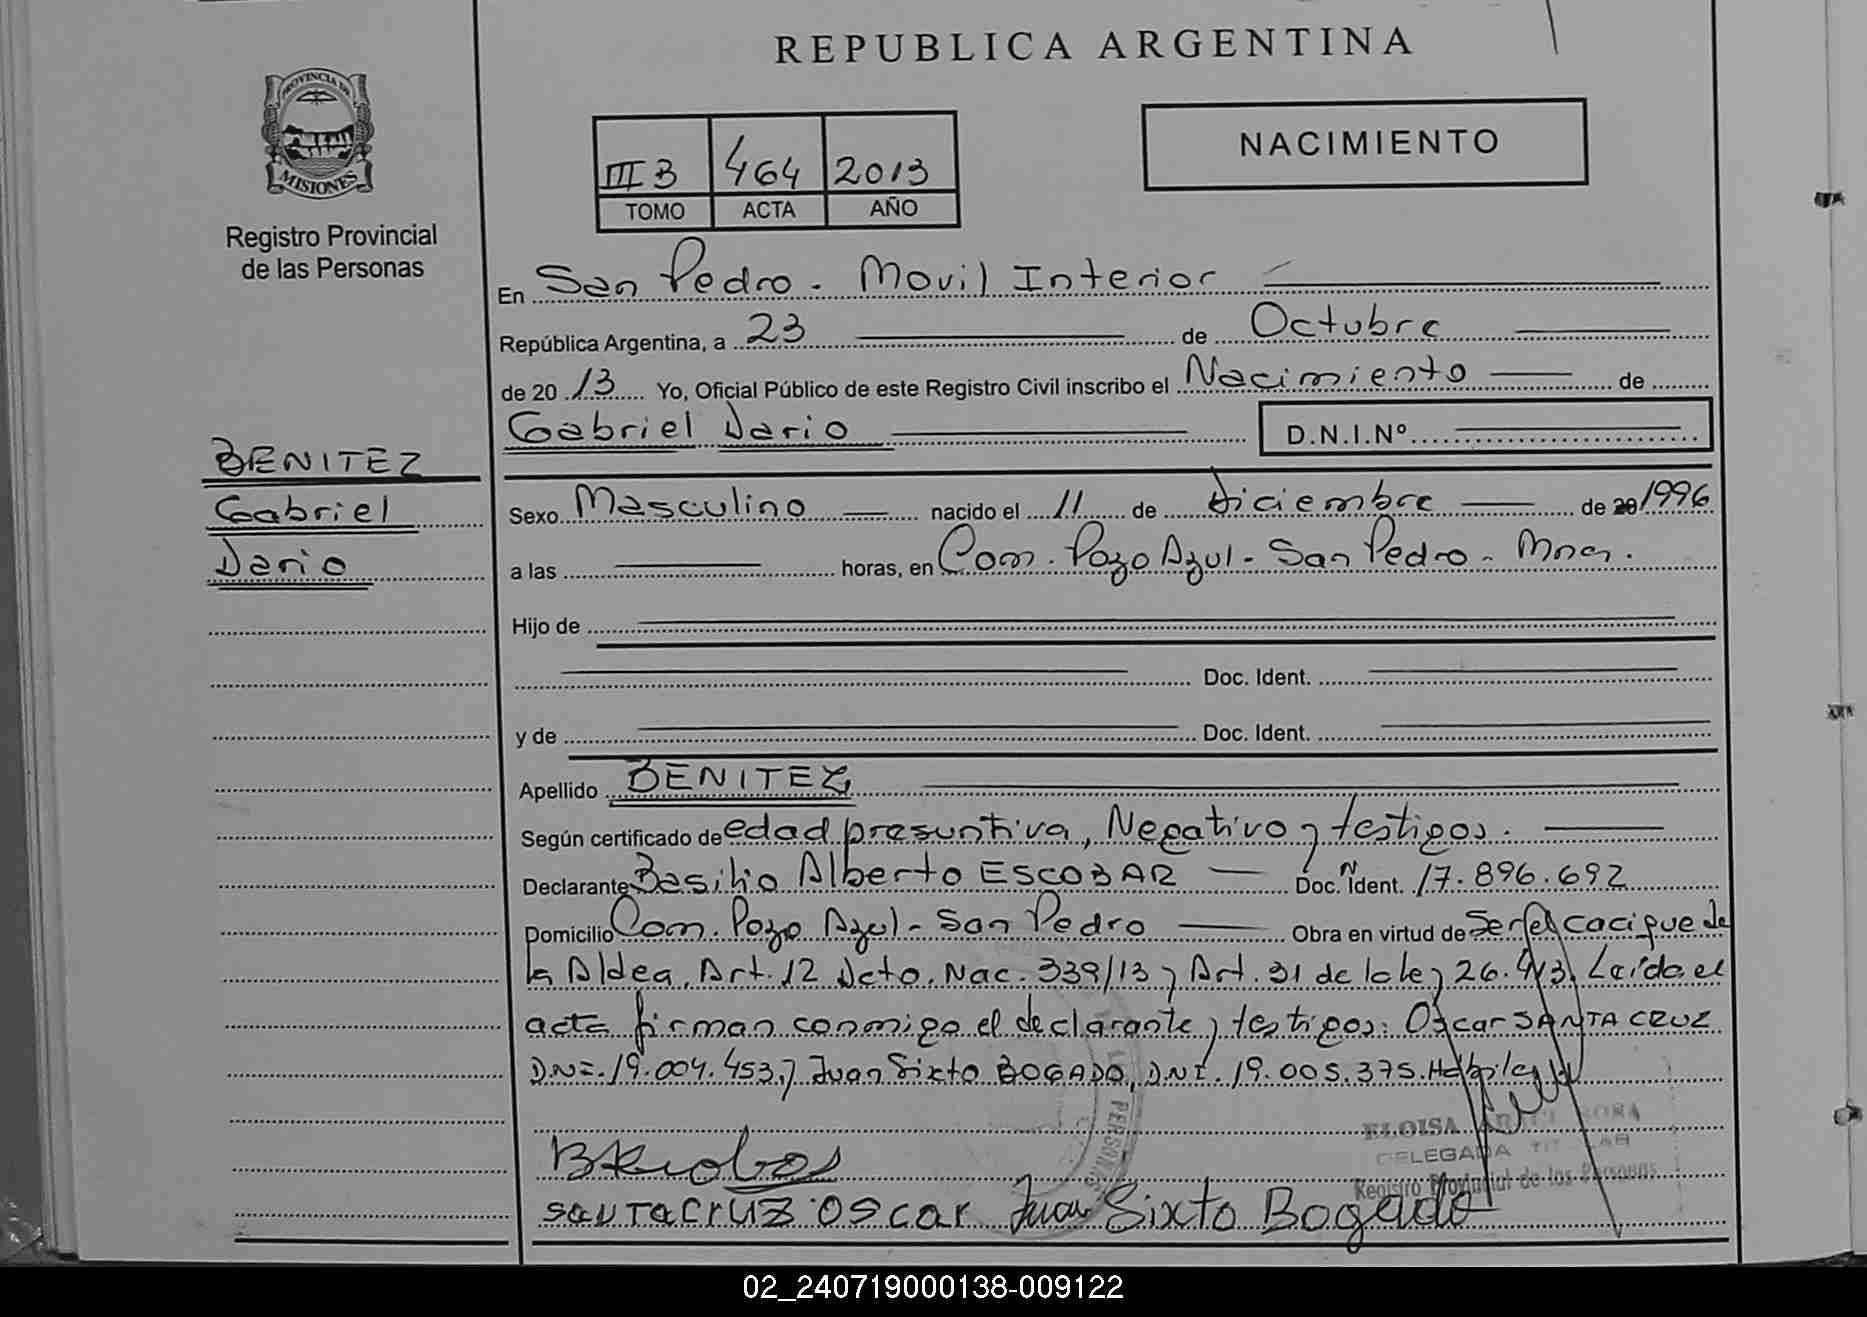 REPUBLICA ARGENTINA
PROVINCIA DE
MISIONES
Registro Provincial
de las Personas
NACIMIENTO
III B 464 2013
TOMO ACTA AÑO
En San Pedro - Movil Interior
República Argentina, a 23 de Octubre
de 20 13 Yo, Oficial Público de este Registro Civil inscribo el Nacimiento de
Gabriel Dario D.N.I.Nº
BENITEZ
Gabriel
Dario
Sexo Masculino nacido el 11 de Diciembre de 20 1996
a las horas, en Com. Pozo Azul - San Pedro - Mnes.
Hijo de
Doc. Ident.
y de Doc. Ident.
Apellido BENITEZ
Según certificado de edad presuntiva, Negativo y testigos.
Declarante Basilio Alberto ESCOBAR Doc. Ident. 17.896.692
Domicilio Com. Pozo Azul - San Pedro Obra en virtud de Ser el cacique de
la Aldea, Art. 12 Dcto. Nac. 339/13 y Art. 31 de la ley 26.413. Leída el
acta firman conmigo el declarante y testigos: Oscar SANTA CRUZ
DNI. 19.004.453 y Juan Sixto BOGADO, DNI. 19.005.375. Hábiles
ELOISA
DELEGADA
Registro Provincial de las Personas
PERSONAS
SANTACRUZ OSCAR Juan Sixto Bogado
02_240719000138-009122